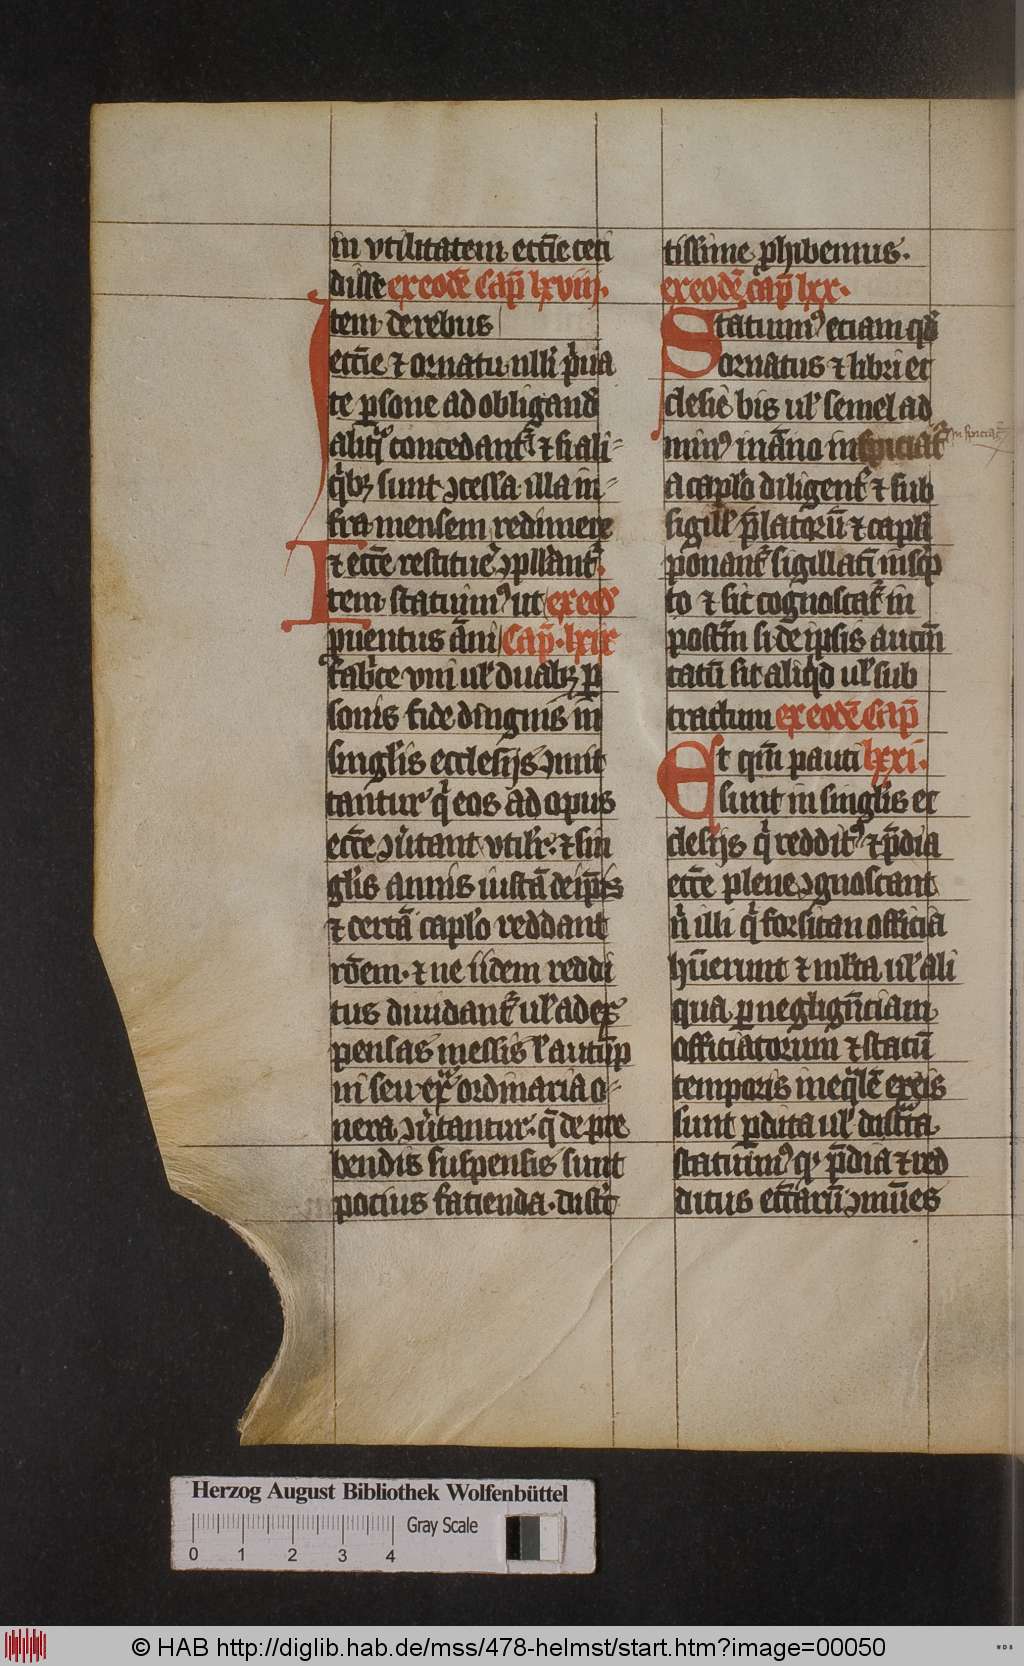 in vtilitatem eccl̄ie ceci
disse ex eodē Cap̄ lxviii.
Item de rebus
eccl̄ie ⁊ ornatu nlli p̍ua
te ꝑsone ad obligand̄
aliqͣ concedantᷣ ⁊ si ali-
q̍bꝫ sunt ↄcessa illa in-
fra mensem redimere
⁊ ecc̄e restitue̍ ↄpllant᷑.
Item statuim᷒ ut ex eod̄
ꝓuentus āni Cap̄. lxix
fab̍ce vni ul̕ duabꝫ ꝑ
sonis fide dingnis in
singl̕is ecclesijs ↄmit
tantur q̍ eos ad opus
ecc̄e ↄu̍tant vtilr̕. ⁊ sin
gl̕is annis iustā de ip̄is
⁊ certā capl̕o reddant
rōem. ⁊ ne iidem reddi
tus diuidant᷑ ul̕ ad ex
pensas messis l̕ autūp
ni seu exͣordinaria o-
nera ↄu̍tantur. q̄ de pre
bendis suspensis sunt
pocius facienda. distc̍
tissime ꝓhibemus.
ex eodē cap̄ lxx.
Statuim᷒ eciam qd̄
ornatus ⁊ libri ec
clesie bis ul̕ semel ad
min᷒ in āno inspiciāt᷑ inspiciāt᷑
a capl̕o diligent᷑ ⁊ sub
sigill̕ p̄latorū ⁊ capl̕i
ponant᷑ sigillati in scp̍
to ⁊ sic cognoscat᷑ in
post̄m si de ipsis autm̄
tatū sit aliq̍d ul̕ sub
tractum ex eodē Cap̄
Et qm̄ pauci lxxi.
sunt in singl̕is ec
clesijs q̍ reddit᷒ ⁊ p̄dia
ecc̄e plene ↄgnoscant
n̍ illi q̍ forsitan officia
hu̅erunt ⁊ ml̕ta ul̕ ali
qua ꝑ neglign̄ciam
officiatorum ⁊ statū
temporis ineql̕ē ex eis
sunt ꝑdita ul̕ distc̄a
statuim᷒ ꝙ p̄dia ⁊ red
ditus ecc̄iarū ↄmu̅es
Herzog August Bibliothek Wolfenbüttel
Gray Scale
0 1 2 3 4
© HAB http://diglib.hab.de/mss/478-helmst/start.htm?image=00050